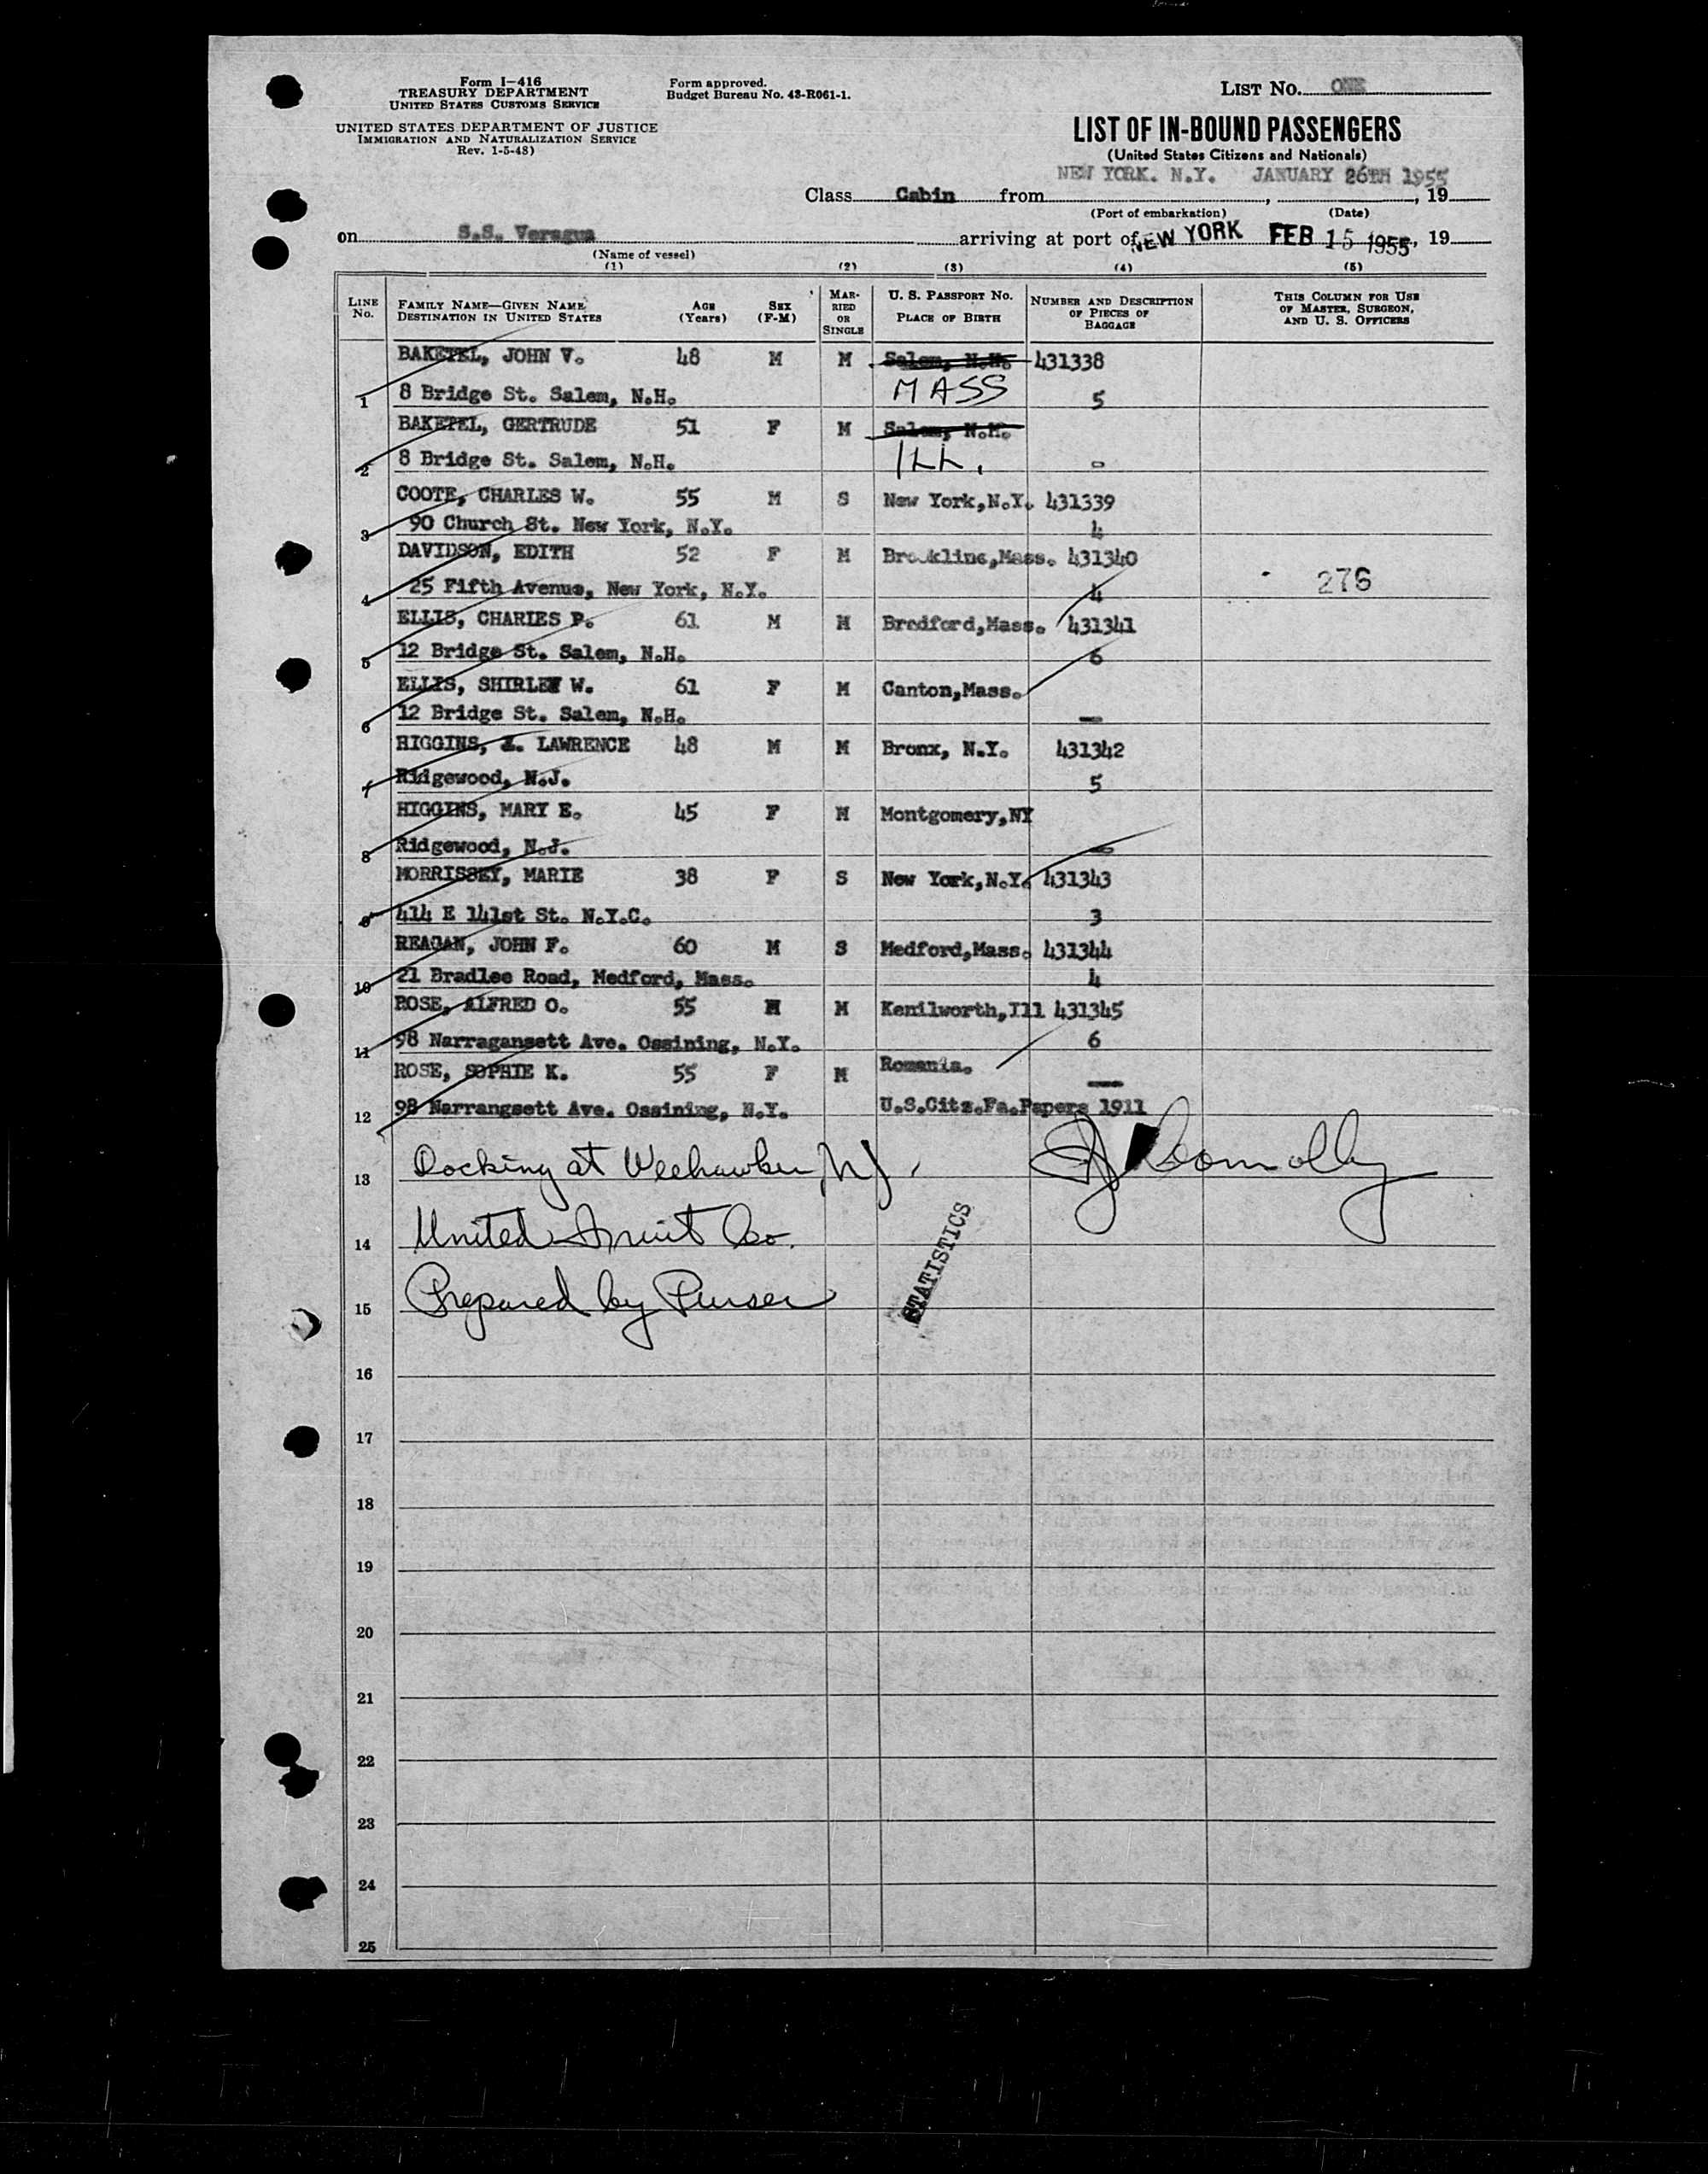 Form I-416
TREASURY DEPARTMENT
UNITED STATES CUSTOMS SERVICE
UNITED STATES DEPARTMENT OF JUSTICE
IMMIGRATION AND NATURALIZATION SERVICE
Rev. 1-5-48)
Form approved.
Budget Bureau No. 43-R061-1.
LIST No. ONE
LIST OF IN-BOUND PASSENGERS
(United States Citizens and Nationals)
NEW YORK. N.Y. JANUARY 26TH 1955
Class Cabin from , , 19
(Port of embarkation) (Date)
on S.S. Veragua arriving at port of NEW YORK FEB 15 1955, 19
(Name of vessel)
(1) (2) (3) (4) (5)
LINE No. FAMILY NAME—GIVEN NAME DESTINATION IN UNITED STATES AGE (Years) SEX (F-M) MARRIED OR SINGLE U. S. PASSPORT NO. PLACE OF BIRTH NUMBER AND DESCRIPTION OF PIECES OF BAGGAGE THIS COLUMN FOR USE OF MASTER, SURGEON, AND U. S. OFFICERS
BAKETEL, JOHN V. 48 M M Salem, N.H. 431338
1 8 Bridge St. Salem, N.H. MASS 5
BAKETEL, GERTRUDE 51 F M Salem, N.H.
2 8 Bridge St. Salem, N.H. ILL. -
COOTE, CHARLES W. 55 M S New York,N.Y. 431339
3 90 Church St. New York, N.Y. 4
DAVIDSON, EDITH 52 F M Brookline,Mass. 431340
4 25 Fifth Avenue, New York, N.Y. 4 276
ELLIS, CHARLES P. 61 M M Bradford,Mass. 431341
5 12 Bridge St. Salem, N.H. 6
ELLIS, SHIRLEY W. 61 F M Canton,Mass.
6 12 Bridge St. Salem, N.H. -
HIGGINS, J. LAWRENCE 48 M M Bronx, N.Y. 431342
7 Ridgewood, N.J. 5
HIGGINS, MARY E. 45 F M Montgomery,NY
8 Ridgewood, N.J. -
MORRISSEY, MARIE 38 F S New York,N.Y. 431343
9 414 E 141st St. N.Y.C. 3
REAGAN, JOHN F. 60 M S Medford,Mass. 431344
10 21 Bradlee Road, Medford, Mass. 4
ROSE, ALFRED O. 55 M M Kenilworth,Ill 431345
11 98 Narragansett Ave. Ossining, N.Y. 6
ROSE, SOPHIE K. 55 F M Romania. -
12 98 Narrangsett Ave. Ossining, N.Y. U.S.Citz.Fa.Papers 1911
13 Docking at Weehawken NJ. Connolly
14 United Fruit Co.
15 Prepared by Purser
STATISTICS
16
17
18
19
20
21
22
23
24
25